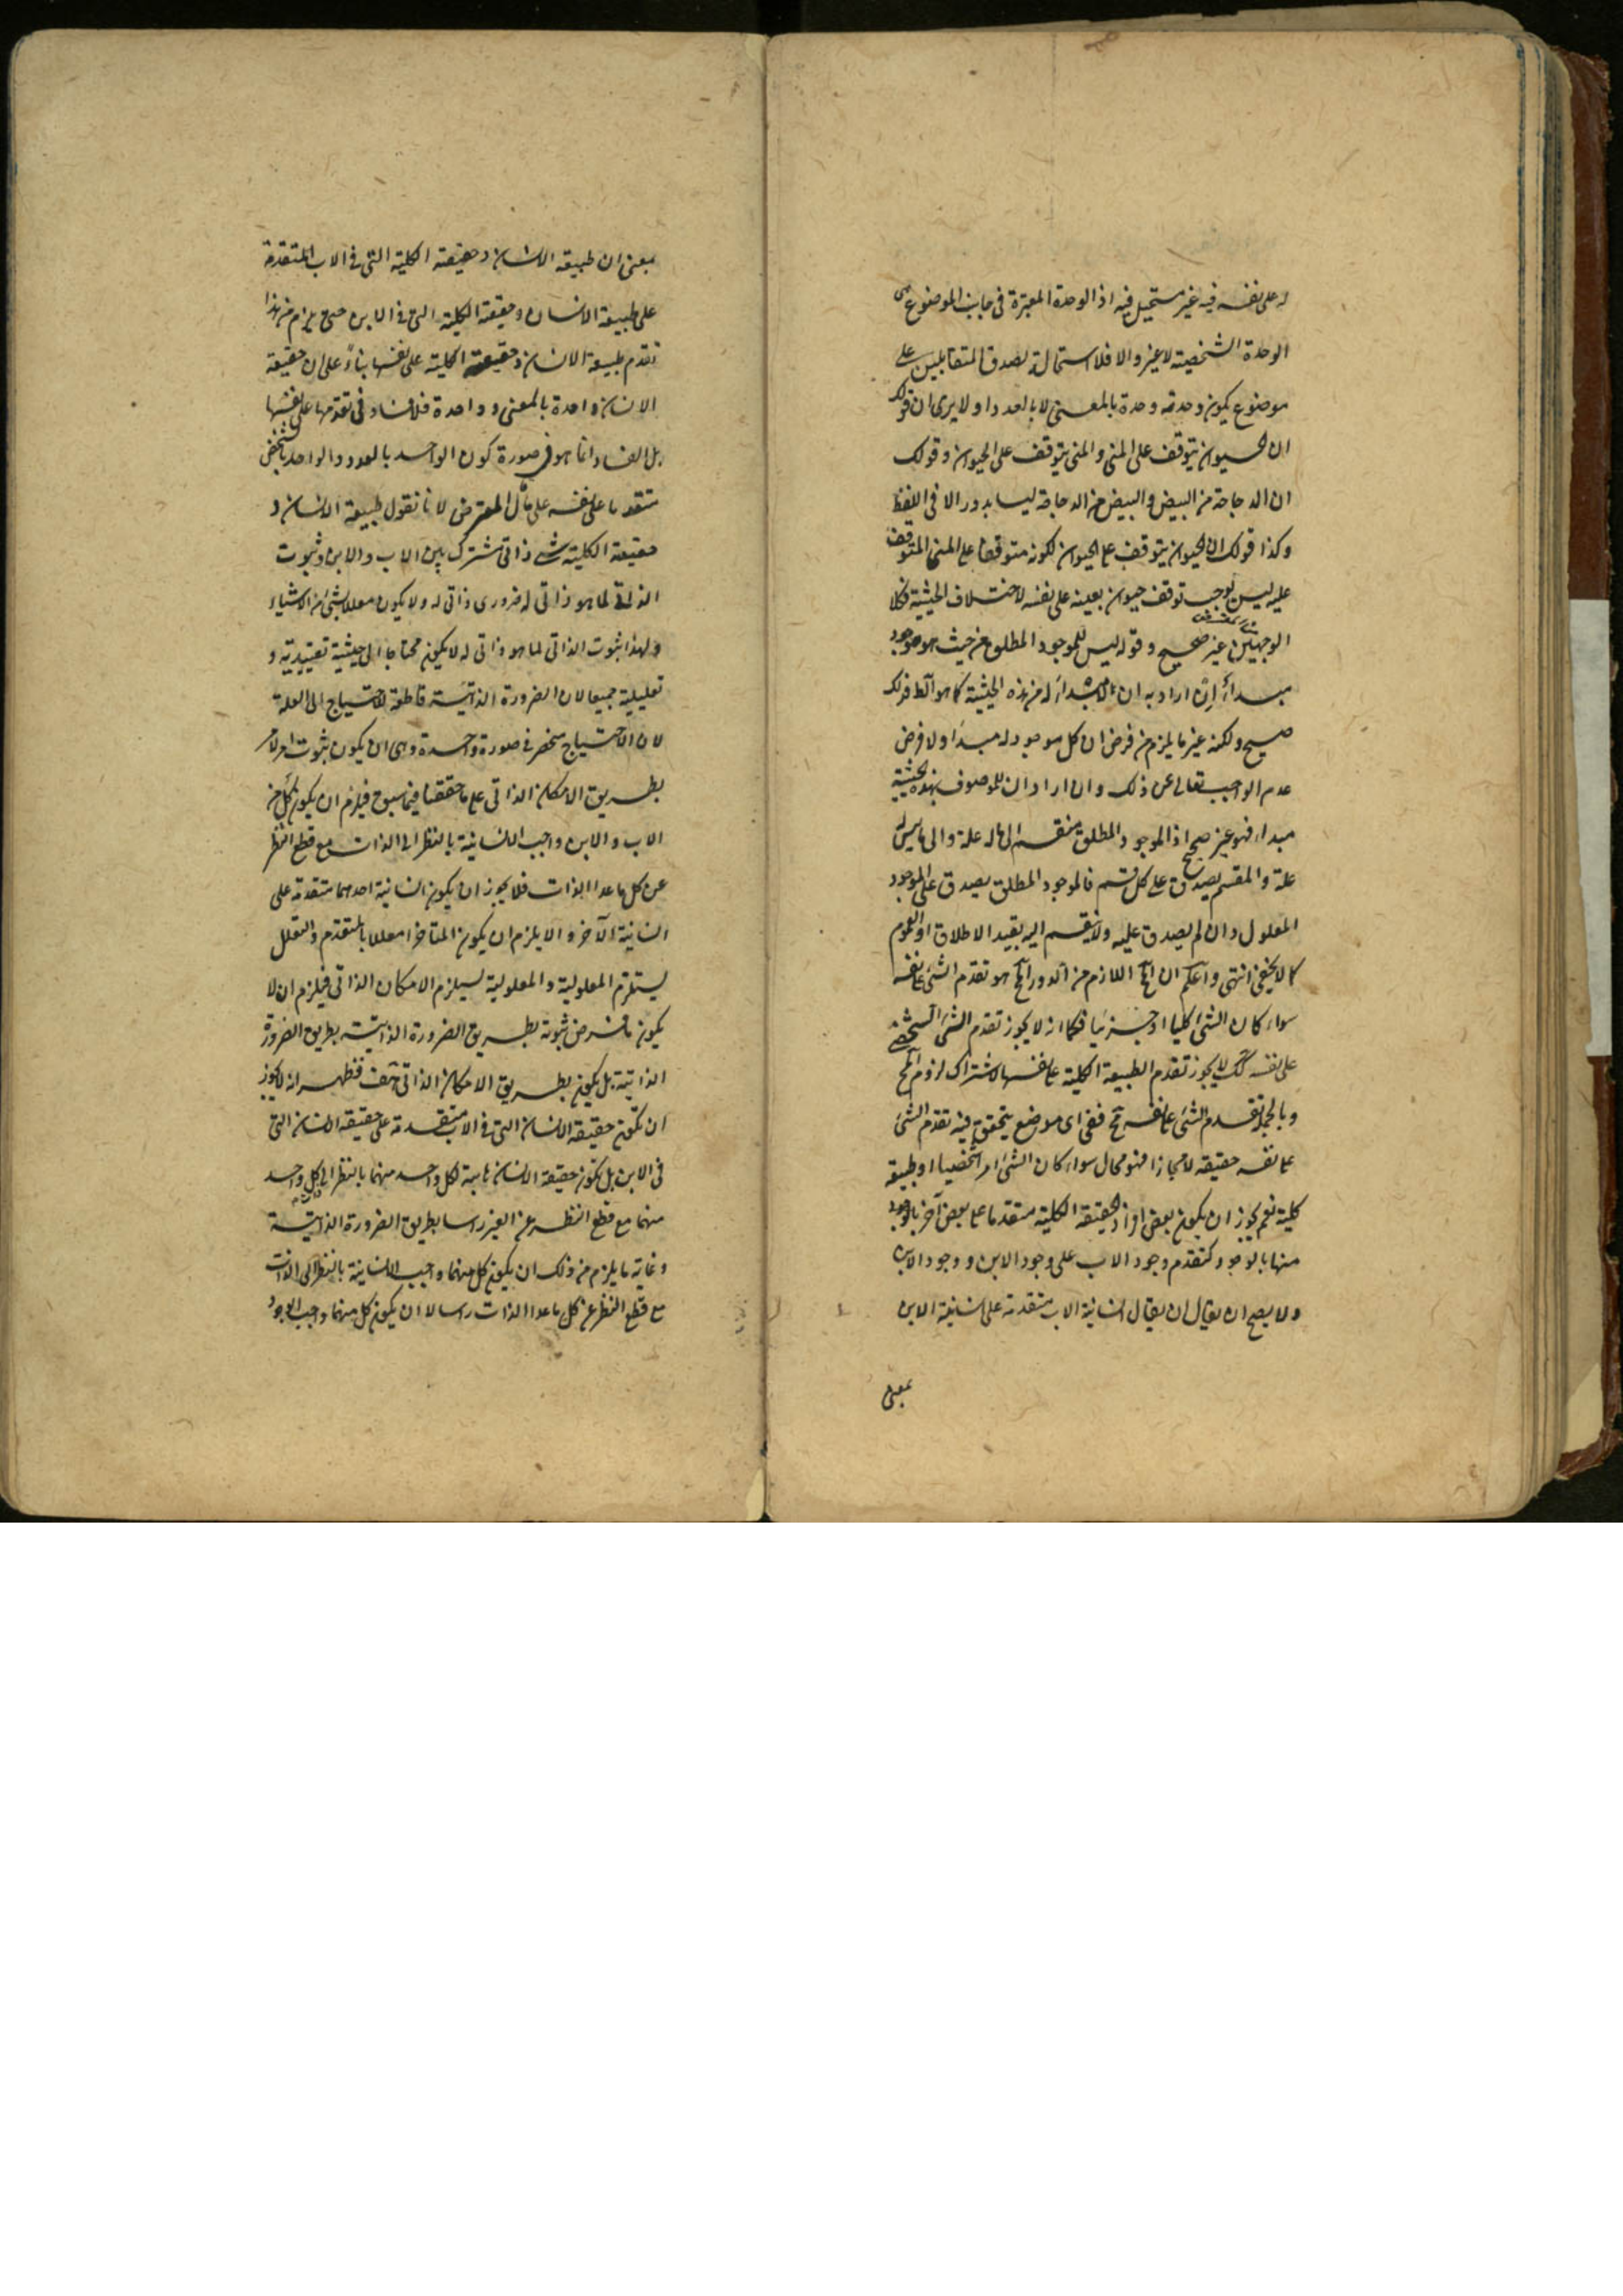 له على نفسه فيه غير مستحيل فيه اذ الوحدة المعتبرة فى جانب الموضوع هى
الوحدة الشخصية لا غير والا فلا استحالة لصدق المتقابلين على
موضوع يكون وحدته وحدة بالمعنى لا بالعدد او لا يرى ان قولك
ان الحيوان يتوقف على المنى والمنى يتوقف على الحيوان وقولك
ان الدجاجة من البيض والبيض من الدجاجة ليسا بدور الا فى اللفظ
وكذا قولك ان الحيوان يتوقف على الحيوان لكونه متوقفا على المنى المتوقف
عليه ليس يوجب توقف حيوان بعينه على نفسه لاختلاف الحيثية فكلا
الوجهين غير صحيح وقوله ليس للموجود المطلق من حيث هو موجود
مبدأ إن اراد به ان لا مبدأ له من هذه الحيثية كما هو الظ فذلك
صحيح ولكنه غير ما يلزم من فرض ان كل موجود له مبدأ ولا فرض
عدم الواجب تعالى عن ذلك وان اراد ان للموصوف بهذه الحيثية
مبدا، فهو غير صحيح اذ الموجود المطلق منقسم الى ما له علة والى ما ليس له
علة والمقسم يصدق على كل قسم فالموجود المطلق يصدق على الموجود
المعلول وان لم يصدق عليه ولا ينقسم اليه بقيد الاطلاق او العموم
كما لا يخفى انتهى واعلم ان المح اللازم من الدور المح هو تقدم الشئ على نفسه
سواء كان الشئ كليا او جزئيا فكما انه لا يجوز تقدم الشئ الشخصى
على نفسه كك لا يجوز تقدم الطبيعة الكلية على نفسها لاشتراك لزوم المح
وبالجملة تقدم الشئ على نفسه مح ففى اى موضع يتحقق فيه تقدم الشئ
على نفسه حقيقة لا مجازا فهو محال سواء كان الشئ امرا شخصيا او طبيعة
كلية نعم يجوز ان يكون بعض افراد الحقيقة الكلية متقدما على بعض آخر بالوجود
منها بالوجود كتقدم وجود الاب على وجود الابن ووجود الابن
ولا يصح ان يقال ان يقال انسانية الاب متقدمة على انسانية الابن
بمعنى
بمعنى ان طبيعة الانسان وحقيقته الكلية التى فى الاب المتقدمة
على طبيعة الانسان وحقيقته الكلية التى فى الابن حتى يلزم من هذا
تقدم طبيعة الانسان وحقيقته الكلية على نفسها بناءً على ان حقيقة
الانسان واحدة بالمعنى وواحدة فلا فساد فى تقدمها على نفسها
بل الفساد انما هو فى صورة كون الواحد بالعدد والواحد بالشخص
متقدما على نفسه على ما قال المعترض لانا نقول طبيعة الانسان و
حقيقته الكلية شئ ذاتى مشترك بين الاب والابن وثبوت
الذاتى لما هو ذاتى له ضرورى ذاتى له ولا يكون معللا بشئ من الاشياء
ولهذا ثبوت الذاتى لما هو ذاتى له لا يكون محتاجا الى حيثية تقييدية و
تعليلية جميعا لان الضرورة الذاتية قاطعة للاحتياج الى العلة
لان الاحتياج منحصر فى صورة واحدة وهى ان يكون ثبوت امر لامر
بطريق الامكان الذاتى على ما حققنا فيما سبق فيلزم ان يكون كل من
الاب والابن واجب الانسانية بالنظر الى الذات مع قطع النظر
عن كل ما عدا الذات فلا يجوز ان يكون انسانية احدهما متقدمة على
انسانية الآخر والا يلزم ان يكون المتاخر معللا بالمتقدم والتعلل
يستلزم المعلولية والمعلولية يستلزم الامكان الذاتى فيلزم ان لا
يكون ما فرض ثبوته بطريق الضرورة الذاتية بطريق الضرورة
الذاتية بل يكون بطريق الامكان الذاتى هف فظهر انه لا يجوز
ان تكون حقيقة الانسان التى فى الاب متقدمة على حقيقة الانسان التى
فى الابن بل تكون حقيقة الانسان ثابتة لكل واحد منهما بالنظر الى كل واحد
منهما مع قطع النظر عن الغير راسا بطريق الضرورة الذاتية
وغاية ما يلزم من ذلك ان يكون كل منهما واجب الانسانية بالنظر الى الذات
مع قطع النظر عن كل ما عدا الذات راسا لا ان يكون كل منهما واجب الوجود